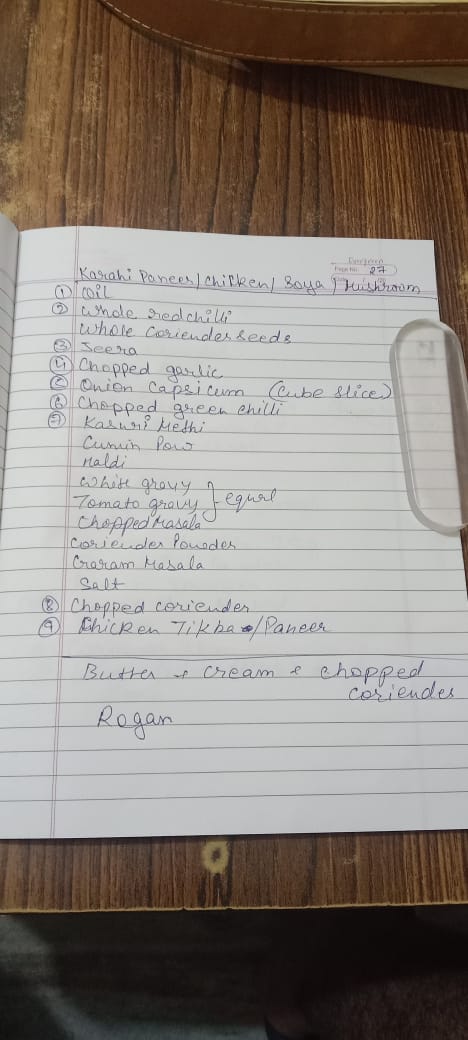 Evergreen
Page No. 27
Karahi Paneer/Chicken/Soya/Mushroom
① Oil
② Whole red chilli
Whole Coriender seeds
③ Jeera
④ Chopped garlic
⑤ Onion Capsicum (Cube slice)
⑥ Chopped green chilli
⑦ Kasuri Methi
Cumin Pow
Haldi
White gravy
Tomato gravy } equal
Chopped Masala
Coriender Powder
Garam Masala
Salt
⑧ Chopped coriender
⑨ Chicken Tikka /Paneer
Butter + cream & chopped
coriender
Rogan